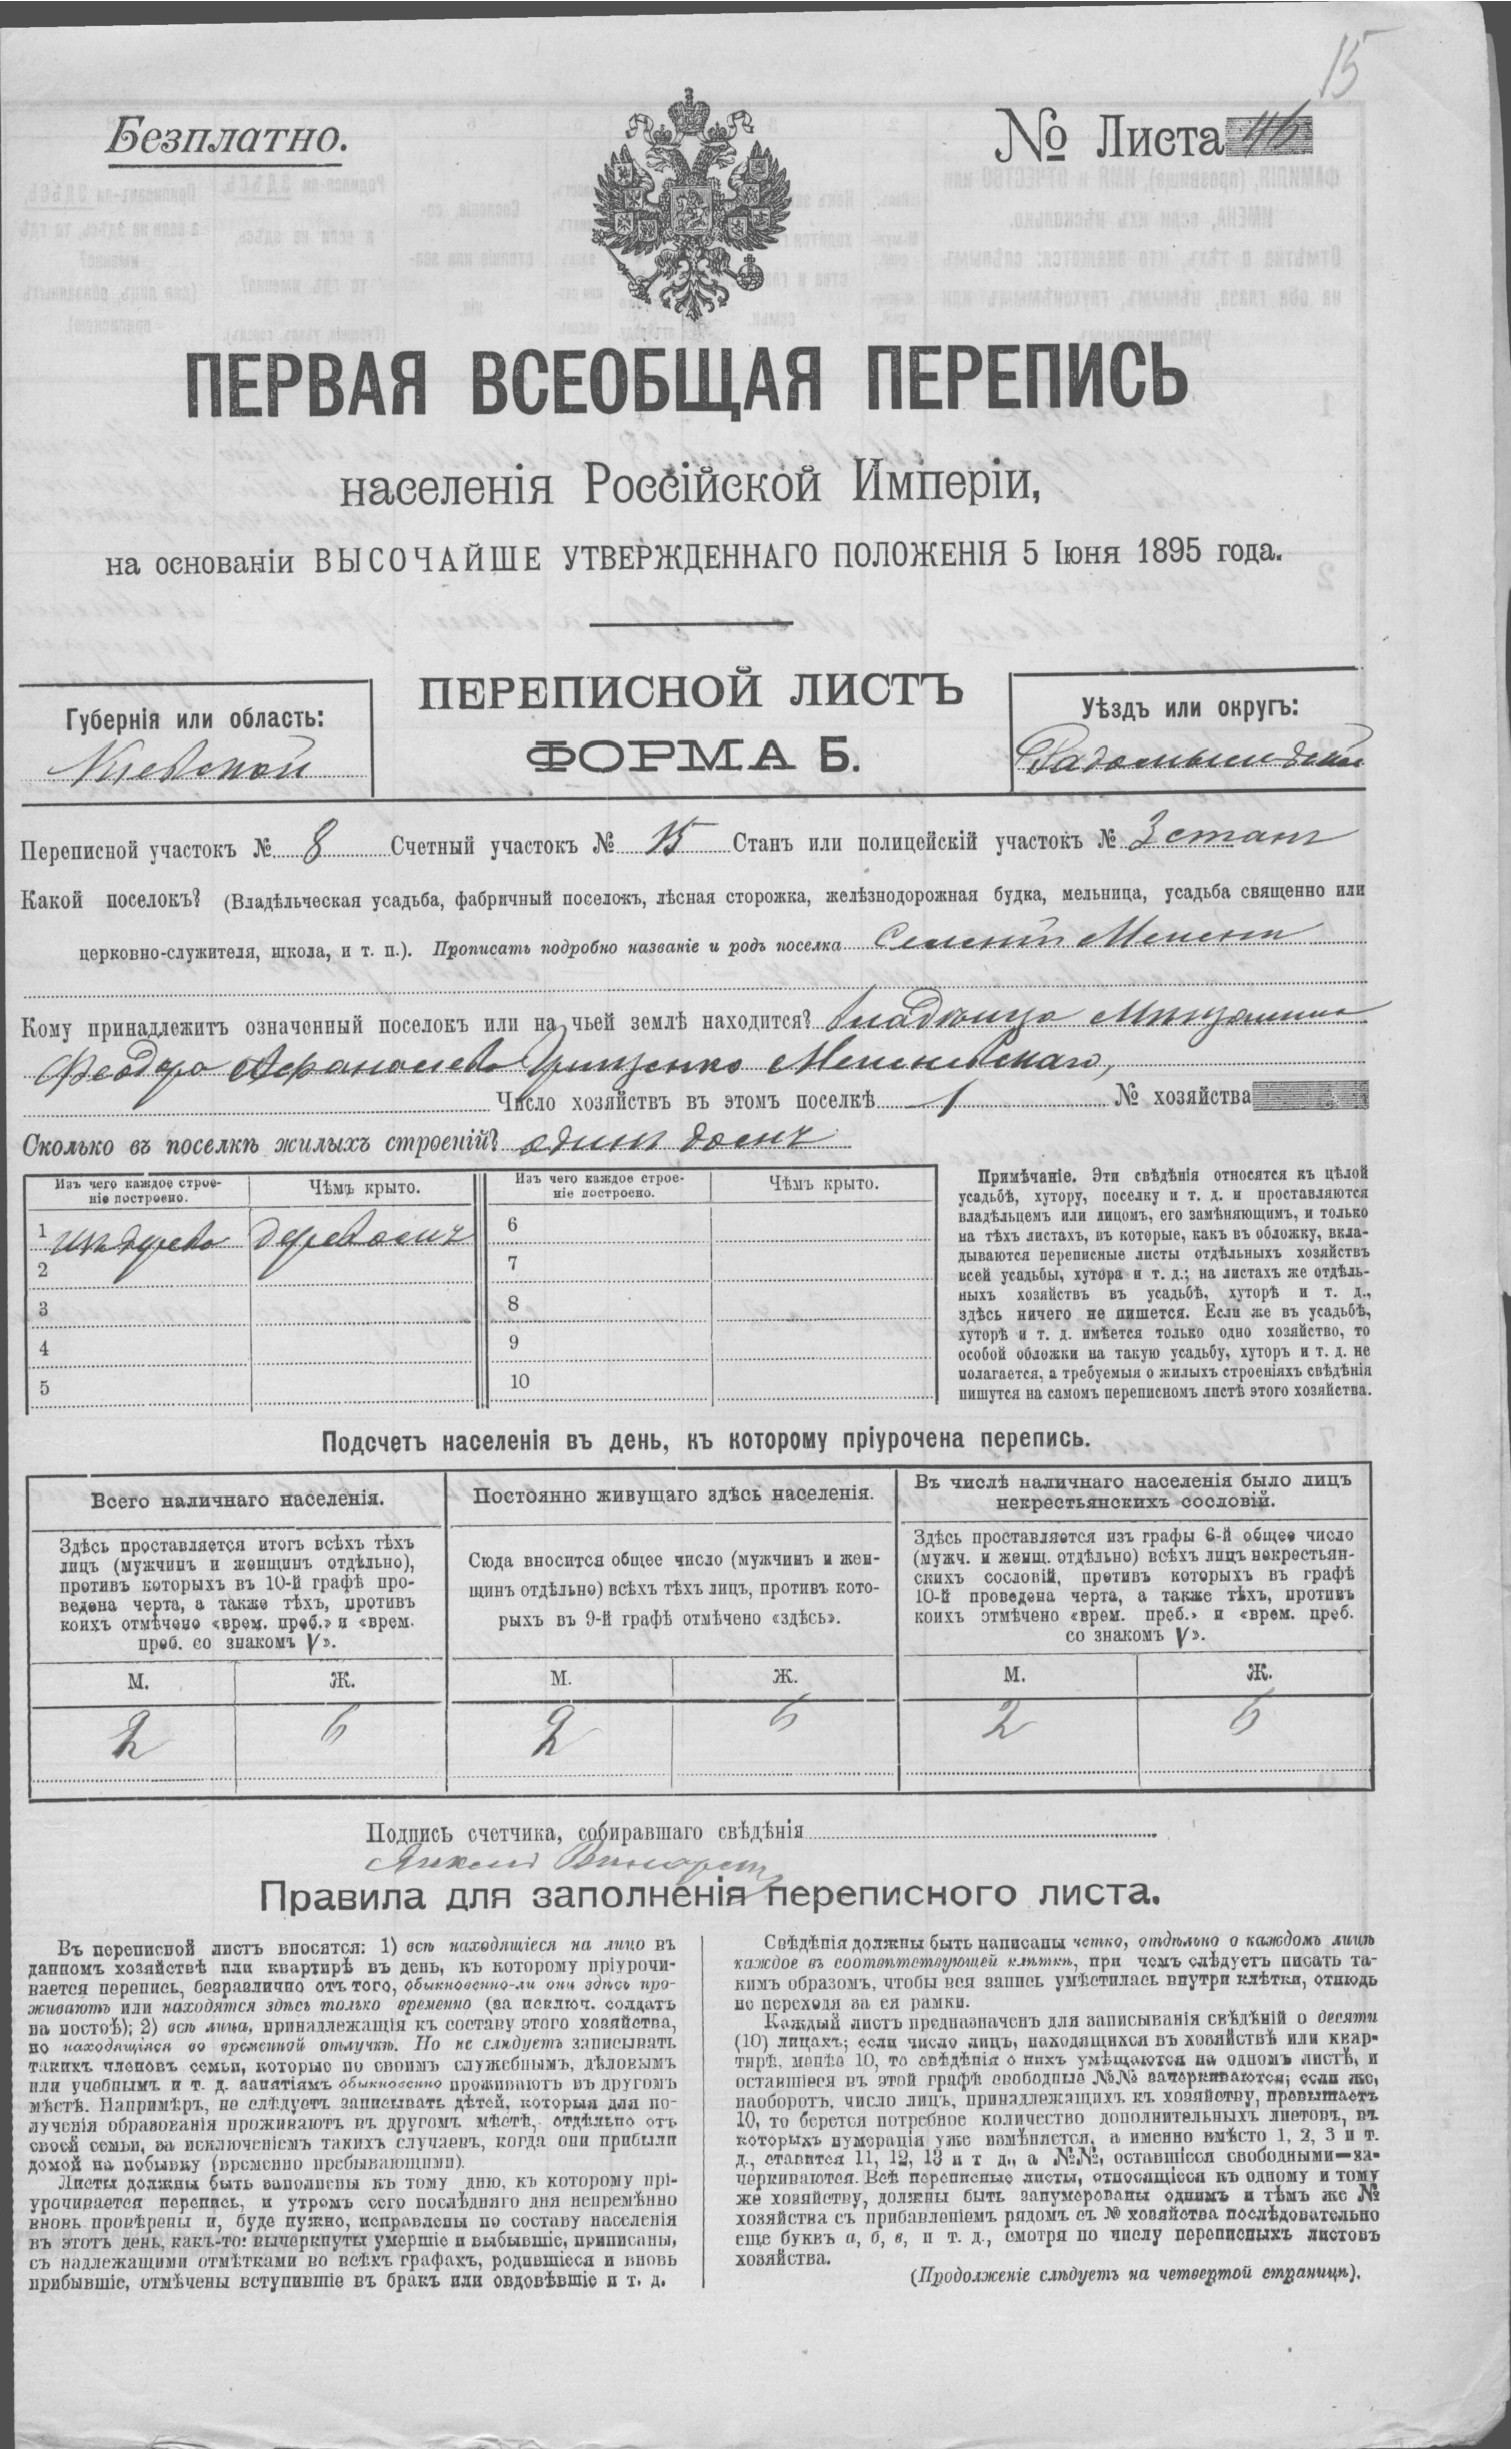 15
Безплатно.
№ Листа 46
ПЕРВАЯ ВСЕОБЩАЯ ПЕРЕПИСЬ
населенія Россійской Имперіи,
на основаніи ВЫСОЧАЙШЕ УТВЕРЖДЕННАГО ПОЛОЖЕНІЯ 5 Іюня 1895 года.
ПЕРЕПИСНОЙ ЛИСТЪ
ФОРМА Б.
Губернія или область:
Кіевской
Уѣздъ или округъ:
Радомысльскій
Переписной участокъ № 8 Счетный участокъ № 15 Станъ или полицейскій участокъ № 3 станъ
Какой поселокъ? (Владѣльческая усадьба, фабричный поселокъ, лѣсная сторожка, желѣзнодорожная будка, мельница, усадьба священно или
церковно-служителя, школа, и т. п.). Прописать подробно названіе и родъ поселка
Кому принадлежитъ означенный поселокъ или на чьей землѣ находится?
Феодора Афанасьева Грищенко
Число хозяйствъ въ этомъ поселкѣ 1 № хозяйства
Сколько въ поселкѣ жилыхъ строеній? одинъ домъ
Изъ чего каждое строе-
ніе построено.
Чѣмъ крыто.
Изъ чего каждое строе-
ніе построено.
Чѣмъ крыто.
1 изъ дерева деревомъ
2
3
4
5
6
7
8
9
10
Примѣчаніе. Эти свѣдѣнія относятся къ цѣлой
усадьбѣ, хутору, поселку и т. д. и проставляются
владѣльцемъ или лицомъ, его замѣняющимъ, и только
на тѣхъ листахъ, въ которые, какъ въ обложку, вкла-
дываются переписные листы отдѣльныхъ хозяйствъ
всей усадьбы, хутора и т. д.; на листахъ же отдѣль-
ныхъ хозяйствъ въ усадьбѣ, хуторѣ и т. д.,
здѣсь ничего не пишется. Если же въ усадьбѣ,
хуторѣ и т. д. имѣется только одно хозяйство, то
особой обложки на такую усадьбу, хуторъ и т. д. не
полагается, а требуемыя о жилыхъ строеніяхъ свѣдѣнія
пишутся на самомъ переписномъ листѣ этого хозяйства.
Подсчетъ населенія въ день, къ которому пріурочена перепись.
Всего наличнаго населенія.
Здѣсь проставляется итогъ всѣхъ тѣхъ
лицъ (мужчинъ и женщинъ отдѣльно),
противъ которыхъ въ 10-й графѣ про-
ведена черта, а также тѣхъ, противъ
коихъ отмѣчено «врем. преб.» и «врем.
преб. со знакомъ V».
М. Ж.
2 6
Постоянно живущаго здѣсь населенія.
Сюда вносится общее число (мужчинъ и жен-
щинъ отдѣльно) всѣхъ тѣхъ лицъ, противъ кото-
рыхъ въ 9-й графѣ отмѣчено «здѣсь».
М. Ж.
2 6
Въ числѣ наличнаго населенія было лицъ
некрестьянскихъ сословій.
Здѣсь проставляется изъ графы 6-й общее число
(мужч. и женщ. отдѣльно) всѣхъ лицъ некрестьян-
скихъ сословій, противъ которыхъ въ графѣ
10-й проведена черта, а также тѣхъ, противъ
коихъ отмѣчено «врем. преб.» и «врем. преб.
со знакомъ V».
М. Ж.
2 6
Подпись счетчика, собиравшаго свѣдѣнія
Правила для заполненія переписного листа.
Въ переписной листъ вносятся: 1) всѣ находящіеся на лицо въ
данномъ хозяйствѣ или квартирѣ въ день, къ которому пріурочи-
вается перепись, безразлично отъ того, обыкновенно-ли они здѣсь про-
живаютъ или находятся здѣсь только временно (за исключ. солдатъ
на постоѣ); 2) всѣ лица, принадлежащія къ составу этого хозяйства,
но находящіяся во временной отлучкѣ. Но не слѣдуетъ записывать
такихъ членовъ семьи, которые по своимъ служебнымъ, дѣловымъ
или учебнымъ и т. д. занятіямъ обыкновенно проживаютъ въ другомъ
мѣстѣ. Напримѣръ, не слѣдуетъ записывать дѣтей, которыя для по-
лученія образованія проживаютъ въ другомъ мѣстѣ, отдѣльно отъ
своей семьи, за исключеніемъ такихъ случаевъ, когда они прибыли
домой на побывку (временно пребывающими).
Листы должны быть заполнены къ тому дню, къ которому прі-
урочивается перепись, и утромъ сего послѣдняго дня непремѣнно
вновь провѣрены и, буде нужно, исправлены по составу населенія
въ этотъ день, какъ-то: вычеркнуты умершіе и выбывшіе, приписаны,
съ надлежащими отмѣтками во всѣхъ графахъ, родившіеся и вновь
прибывшіе, отмѣчены вступившіе въ бракъ или овдовѣвшіе и т. д.
Свѣдѣнія должны быть написаны четко, отдѣльно о каждомъ лицѣ
каждое въ соотвѣтствующей клѣткѣ, при чемъ слѣдуетъ писать та-
кимъ образомъ, чтобы вся запись умѣстилась внутри клѣтки, отнюдь
не переходя за ея рамки.
Каждый листъ предназначенъ для записыванія свѣдѣній о десяти
(10) лицахъ; если число лицъ, находящихся въ хозяйствѣ или квар-
тирѣ, менѣе 10, то свѣдѣнія о нихъ умѣщаются на одномъ листѣ, и
оставшіеся въ этой графѣ свободные №№ зачеркиваются; если же,
наоборотъ, число лицъ, принадлежащихъ къ хозяйству, превышаетъ
10, то берется потребное количество дополнительныхъ листовъ, въ
которыхъ нумерація уже измѣняется, а именно вмѣсто 1, 2, 3 и т.
д., ставится 11, 12, 13 и т д., а №№, оставшіеся свободными—за-
черкиваются. Всѣ переписные листы, относящіеся къ одному и тому
же хозяйству, должны быть занумерованы однимъ и тѣмъ же №
хозяйства съ прибавленіемъ рядомъ съ № хозяйства послѣдовательно
еще буквъ а, б, в, и т. д., смотря по числу переписныхъ листовъ
хозяйства.
(Продолженіе слѣдуетъ на четвертой страницѣ).